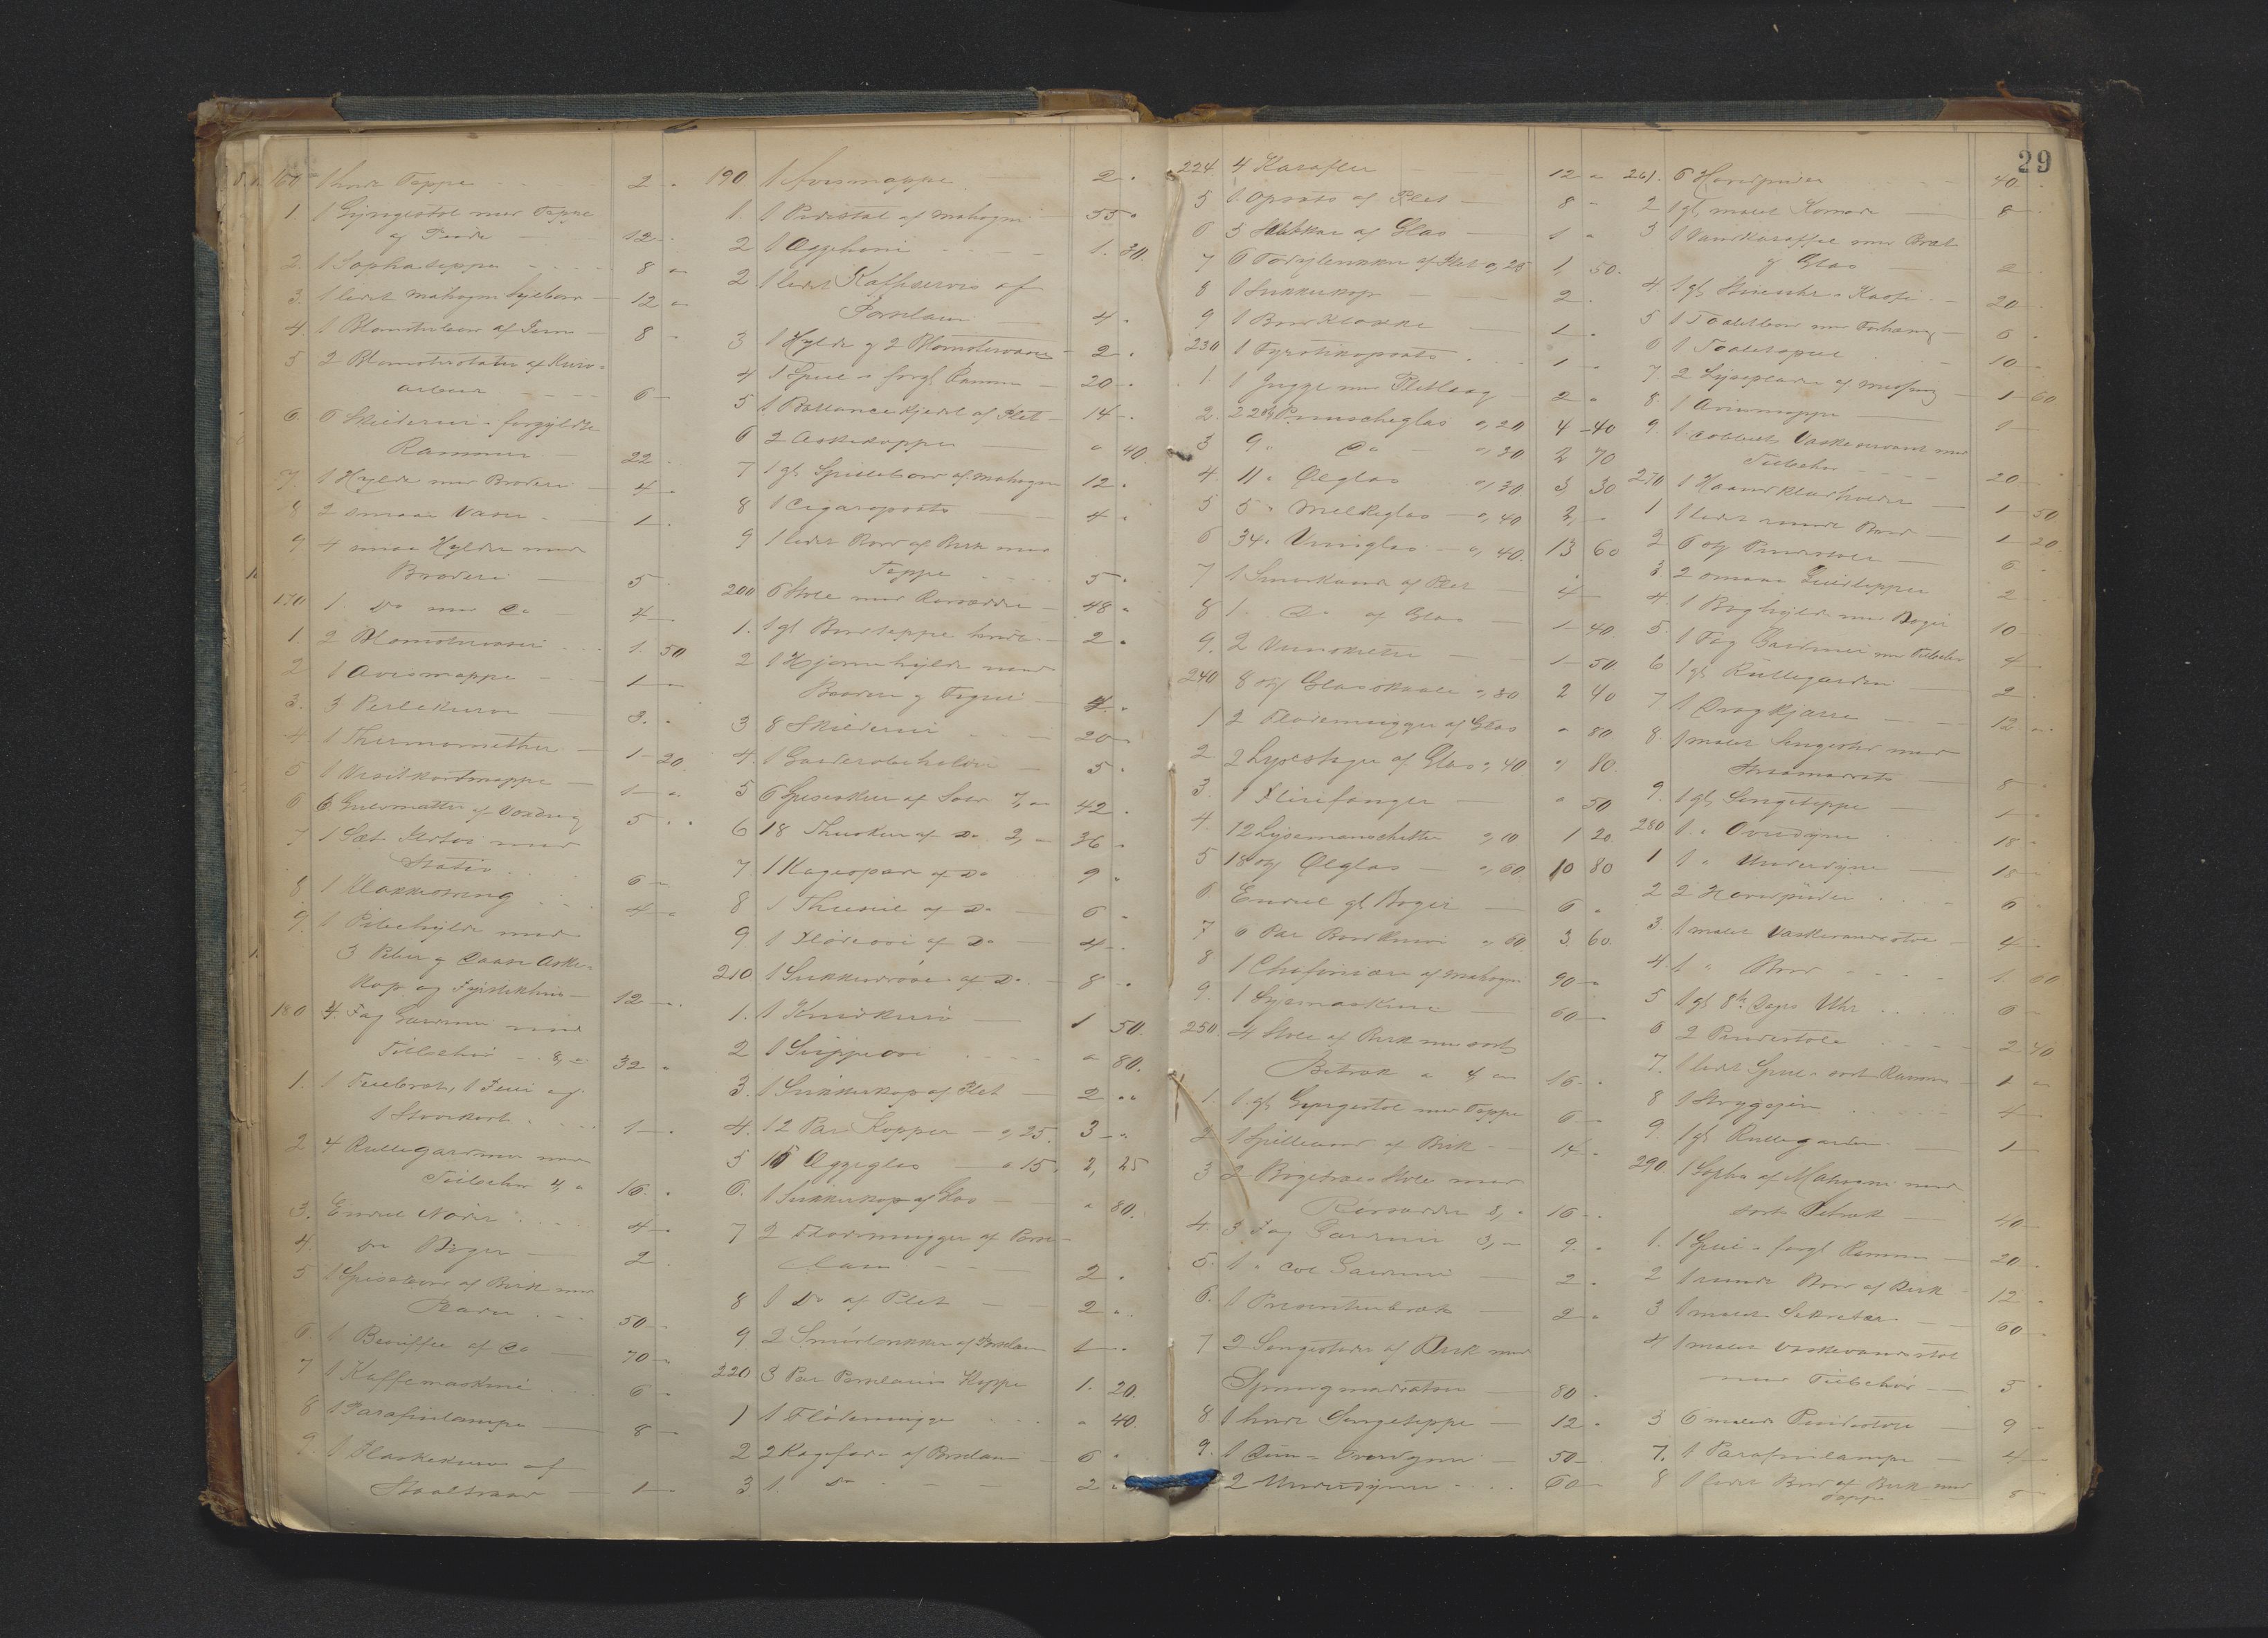 160 1 hvidt Teppe 2 "
1. 1 Gyngestol med Teppe
og Pude 12 "
2. 1 Sophateppe 8 "
3. 1 lidet Mahogni Sybord 12 "
4. 1 Blomsterbord af Jern 8 "
5 2 Blomsterstativ af Kurv=
arbeid 6 "
6. 6 Skilderier i forgyldte
Rammer 22 "
7. 1 Hylde med Broderi 4 "
8 2 smaa Vaser 1 "
9 4 smaa Hylder med
Broderi 5 "
170 1 Do med Do 4 "
1. 2 Blomstervaser 1. 50
2 1 Avismappe 1 "
3. 3 Perlekurve 3. "
4 1 Thermomether 1 20.
5 1 Visitkortmappe 1 "
6 6 Gulvmatter af Voxdug 5 "
7 1 Sæt Ildtøi med
Stativ 6 "
8 1 Klokkestreng 4 "
9. 1 Pibehylde med
3 Piber og Daase Aske=
kop og Fyrstikhuus 12 "
180 4 Fag Gardiner med
Tilbehør 8, " 32 "
1. 1 Tavle
1 1 "
2 4 Rullegardiner med
Tilbehør 4, " 16. "
3. Endel Noder 4 "
4. Do Bøger 2
5 1 Spisebord af Birk med
Plader 50 "
6 1 Bouffee af Do 70 "
7 1 Kaffemaskine 6 "
8 1 Parafinlampe 8 "
9. 1 Flaskekurv af
Staaltraad 1 "
190 1 Avismappe 2 "
1. 1 Pidistal af Mahogni 55 "
2 1 Æggehøne 1. 30.
2 1 lidet Kaffeservis af
Porselain 4 "
3 1 Hylde og 2 Blomstervaser 2 "
4 1 Speil i forgl Ramme 20 "
5 1 Ballancekjedel af Plet 14 "
6 2 Askekopper " 40.
7 1 gl Spillebord af Mahogni 12 "
8 1 Cigaropsats 4 "
9 1 lidet Bord af Birk med
Teppe 5 "
200 6 Stole med Rørsæder 48 "
1. 1 gl Bordteppe hvidt 2 "
2 1 Hjørnehylde med
Broderi og Figur 4 "
3 8 Skilderier 20 "
4. 1 Garderobeholder 5 "
5 6 Spiseskeer af Sølv 7, " 42 "
6 18 Theskeer af Do 2, " 36 "
7 1 Kagespade af Do 9 "
8 1 Thesiil af Do 6 "
9. 1 Flødeøse af Do 4 "
210 1 Sukkerskee af Do 8 "
1. 1 Knivkurv 1 50.
2 1 Suppeøse " 80.
3. 1 Sukkerkop af Plet 2 "
4. 12 Par Kopper " 25. 3 "
5 15 Æggeglas " 15. 2, 25
6. 1 Sukkerkop af Glas " 80.
7 2 Flødemugger af Porse=
lain 2 "
8 1 Do af Plet 2 "
9 2 Smørbrikker af Porselain 1 "
220 3 Par Porselains Kopper 1. 20.
1 1 Flødemugge " 40.
2 2 Kagefade af Porselain 6 "
3 1 Do 2 "
29
224. 4 Karafler 12 "
5 1 Opsats af Plet 8 "
6 3 Saltkar af Glas 1 "
7 6 Toddybrikker af Plet " 25 1, 50.
8 1 Sukkerkop 2 "
9 1 Bordklokke 1 "
230 1 Fyrstikopsats 1 "
1. 1 Jugge med Pletlaag 2 "
2. 22 stk Punscheglas " 20 4 40
3 9 " Do " 30 2 70
4 11 " Ølglas " 30 3, 30
5 5 " Melkeglas " 40 2, "
6 34 " Viinglas " 40. 13 60
7 1 Smørkande af Plet 4 "
8 1 Do af Glas 1 40.
9. 2 1 50
240 8 stk Glasskaale " 30 2 40
1 2 Flødemugger af Glas " 80
2 2 Lysestager af Glas " 40 " 80.
3. 1 Fluefanger " 50
4. 12 Lysemanschetter " 10 1 20.
5 18 stk Ølglas " 60 10 80
6. Endel gl Bøger 6 "
7 6 Par Bordknive " 60. 3 60.
8 1 Chefoniære af Mahogni 90 "
9. 1 Symaskine 60 "
250. 4 Stole af Birk med sort
Betræk a 4, " 16 "
1. 1 gl Gyngestol med Teppe 6 "
2 1 Spillebord af Birk 14 "
3 2 Bøgetræes Stole med
Rørsæder 8, " 16 "
4. 3 Fag Gardiner 3, " 9. "
5. 1 " Gardiner 2 "
6. 1 Presenteerbræt 2 "
7 2 Sengesteder af Birk med
Springmadratser 80 "
8 1 hvidt Sengeteppe 12 "
9. 1 Duun= Overdyne 50
2 Underdyner 60
261. 6 Hovedpuder 40. "
2 1 gl, malet Komode 8
3 1 Vandkaraffel med Bræt
og Glas 2
4. 1 gl, Kaabe 20
5 1 Toiletbord med Forhæng 6
6 1 Toiletspeil 10
7. 2 Lyseplader af Messing 1 60
8. 1 Avismappe 1
9. 1 Vaskeservant med
Tilbehør 20
270 1 Haandklædeholder 1 50
1 1 lidet rundt Bord 1 20.
2 6 stk Pindestole 6
3. 2 smaa Gulvtepper 2
4. 1 Boghylde med Bøger 10
5. 1 Fag Gardiner med Tilbehør 4
6 1 gl Rullegardin 2
7 1 Dragkjærre 12 "
8. 1 malet Sengested med
Straamadrats 8
9. 1 gl, Sengeteppe 1
280 1 " Overdyne 18
1 1 " Underdyne 18
2 2 Hovedpuder 6
3. 1 malet Vaskevandsstol 4
4. 1 " Bord 1. 60
5 1 gl, 8te Dages Uhr 6
6 2 Pindestole 2 40
7. 1 lidet Speil i sort Ramme 1 "
8 1 Strygejern 4
9. 1 gl Rullegardin 1
290 1 Sopha af Mahogni med
sort Betræk 40
1. 1 Speil i forgl Ramme 20
2 1 rundt Bord af Birk 12
3 1 malet Sekretær 60
4 1 malet Vaskevandsstol
med Tilbehør 5
5 6 malede Pindestole 9
7. 1 Parafinlampe 4
8 1 lidet Bord af Birk med
Teppe 8